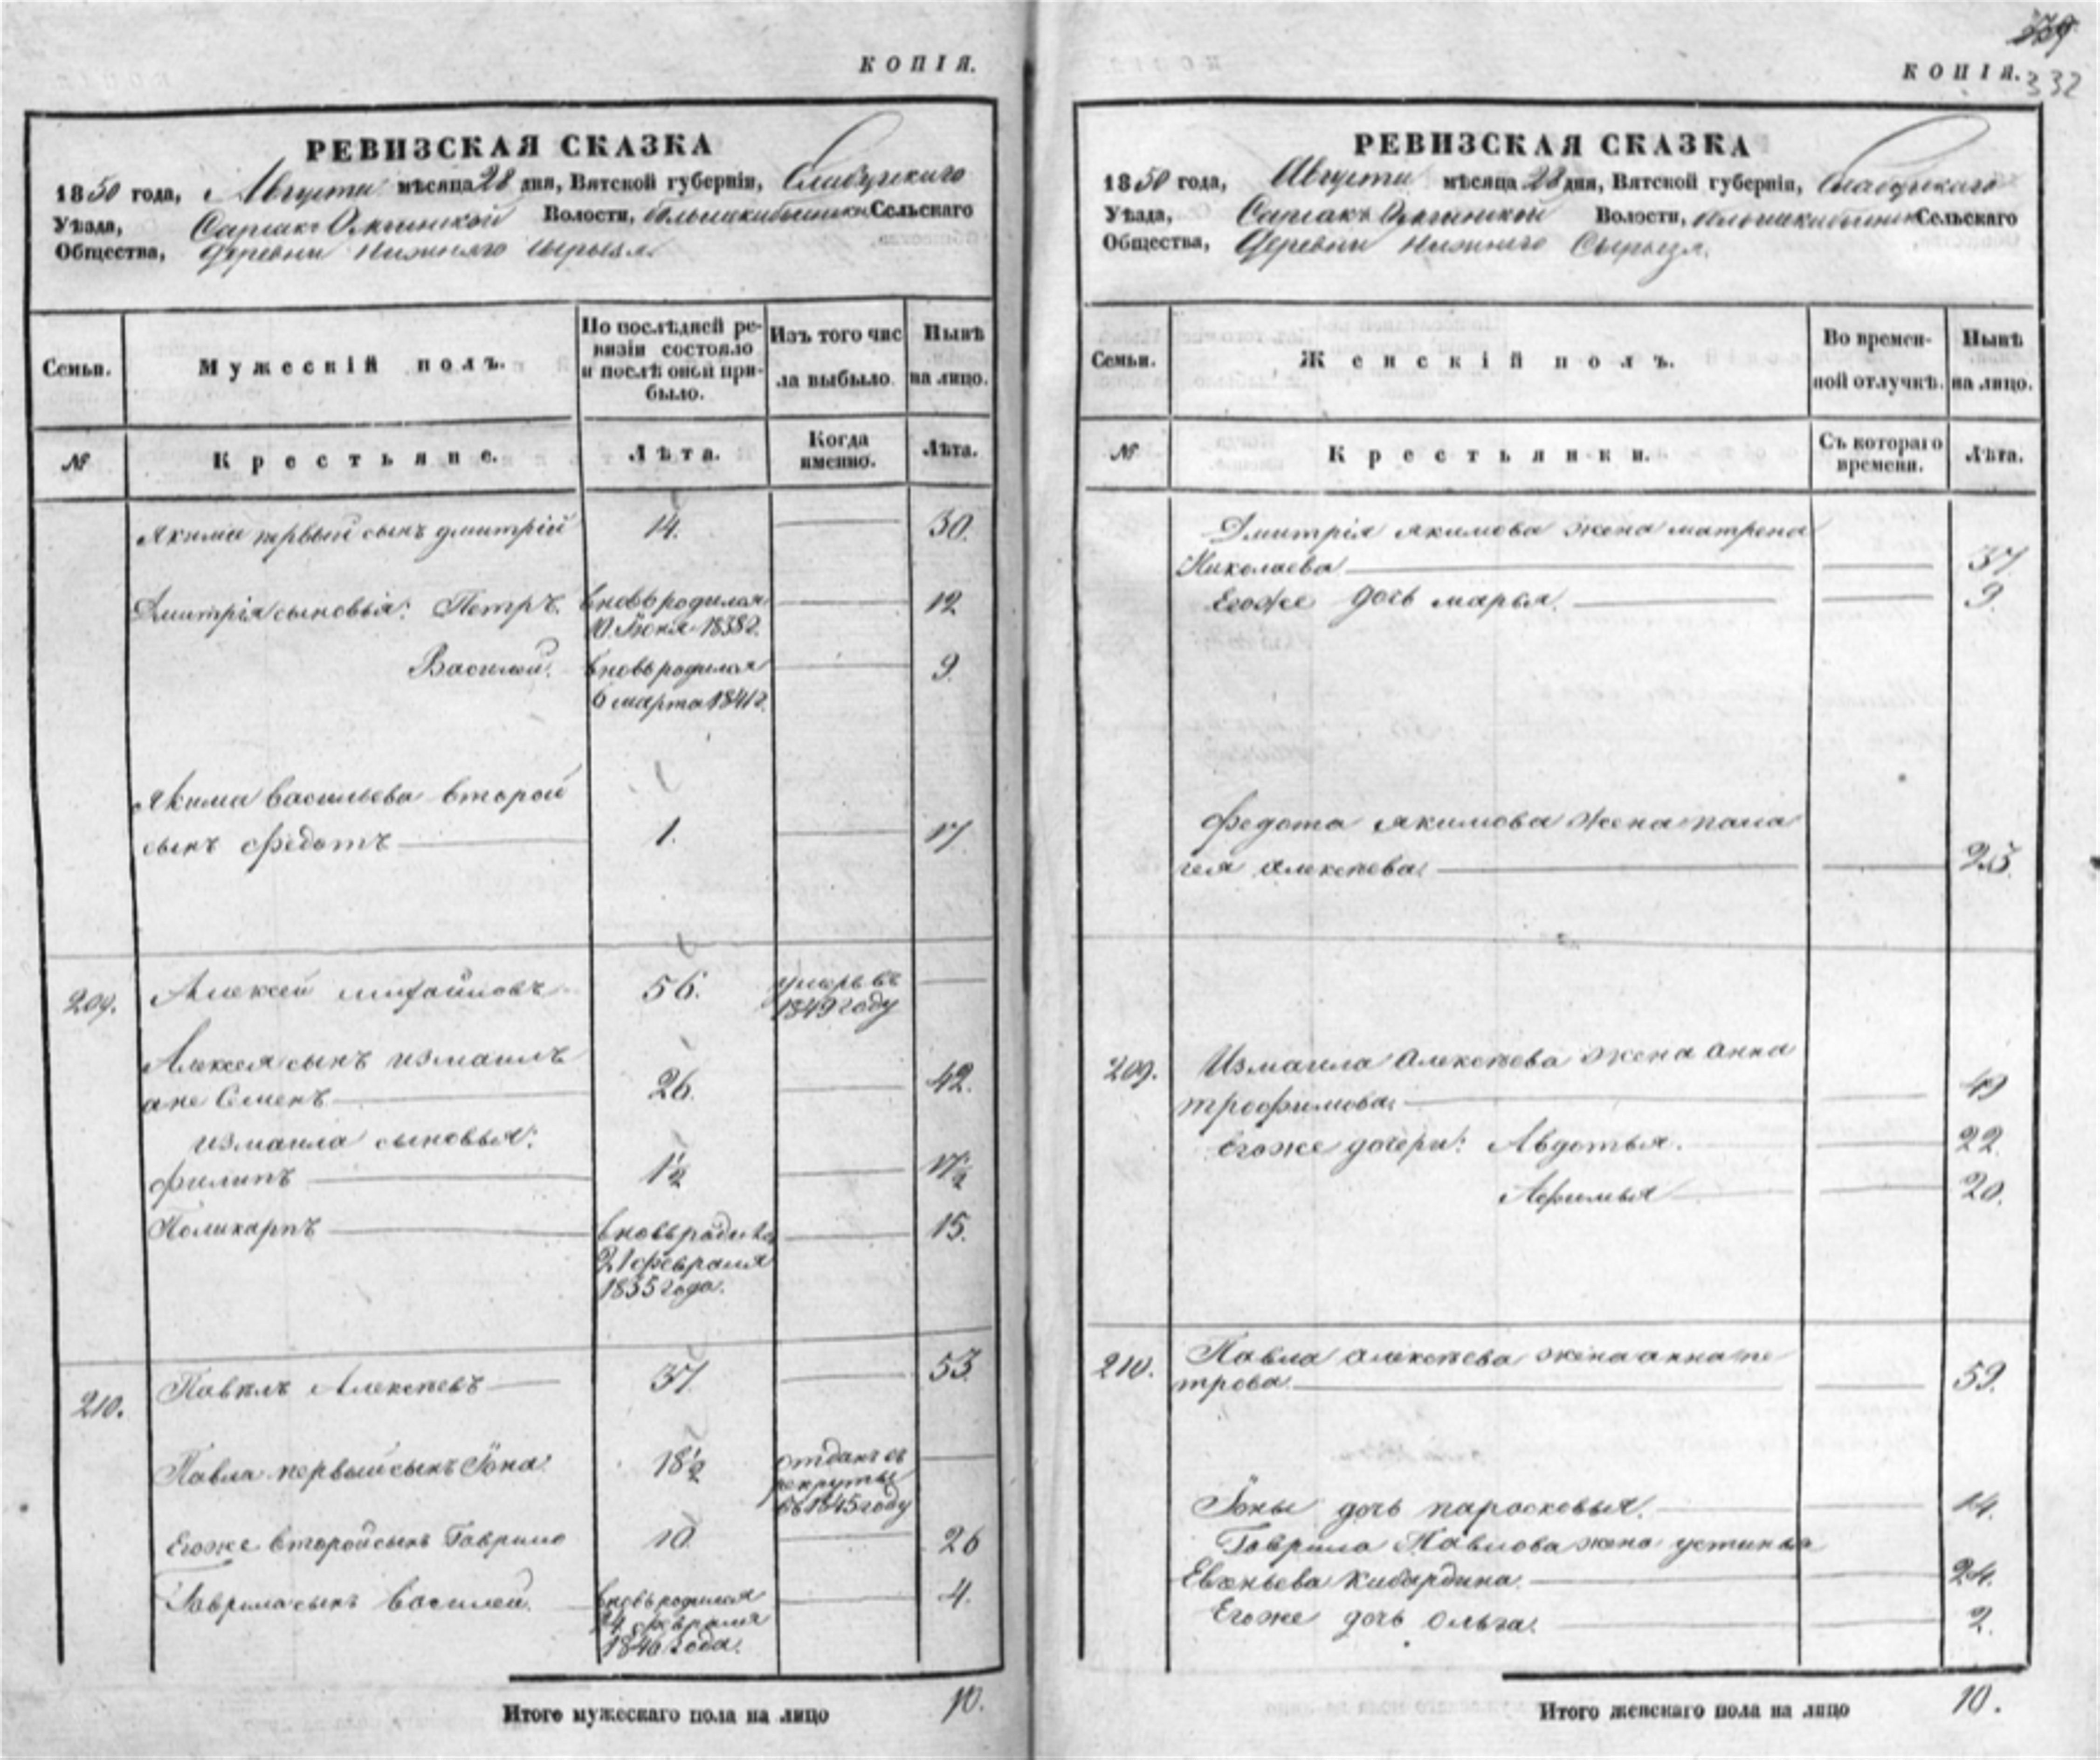 КОПІЯ.
РЕВИЗСКАЯ СКАЗКА
1850 года, Августа мѣсяца 28 дня, Вятской губерніи, Елабужскаго
Уѣзда, Волости, Сельскаго
Общества, Деревни Нижняго Сырьеза
Семьи.
Мужескій полъ.
По послѣдней ре-
визіи состояло
и послѣ оной при-
было.
Изъ того чис
ла выбыло.
Нынѣ
на лицо.
№
Крестьяне.
Лѣта.
Когда
именно.
Лѣта.
Якима первый сынъ дмитрій 14. 30.
Дмитрія сыновья: Петръ. вновь родился 12
10 Іюня 1838г.
Василей. вновь родился 9.
6 марта 1841г.
Якима васильева второй
сынъ Федотъ 1. 17.
209. Алексей 56. умеръ въ
1849 году
Алексея сынъ измаилъ
Семенъ 26. 42.
измаила сыновья:
филипъ 1½ 17½
Поликарпъ вновь родился 15.
21 февраля
1835 года.
210. Павелъ Алексѣевъ 37. 53.
Павла первый сынъ Іона 18½ отданъ въ
рекруты
въ 1845 году
Егоже второй сынъ Гаврило 10. 26
Гаврила сынъ василей. вновь родился 4.
февраля
1846 года.
Итого мужескаго пола на лицо 10.
КОПІЯ.
332
РЕВИЗСКАЯ СКАЗКА
1850 года, Августа мѣсяца 28 дня, Вятской губерніи, Елабужскаго
Уѣзда, Волости, Сельскаго
Общества, Деревни Нижняго Сырьеза.
Семьи.
Женскій полъ.
Во времен-
ной отлучкѣ.
Нынѣ
на лицо.
№
Крестьянки.
Съ котораго
времени.
Лѣта.
Дмитрія якимова жена матрена
Николаева 37.
Егоже дочь марья. 9.
федота якимова жена пала
гея алексѣева 25.
209. Измаила алексѣева жена анна
трофимова 49
Егоже дочери: Авдотья. 22.
Афимья 20.
210. Павла алексѣева жена анна пе
трова 59.
Іоны дочь парасковья. 14.
Гаврила Павлова жена устинья
Кибардина. 24.
Егоже дочь ольга. 2.
Итого женскаго пола на лицо 10.